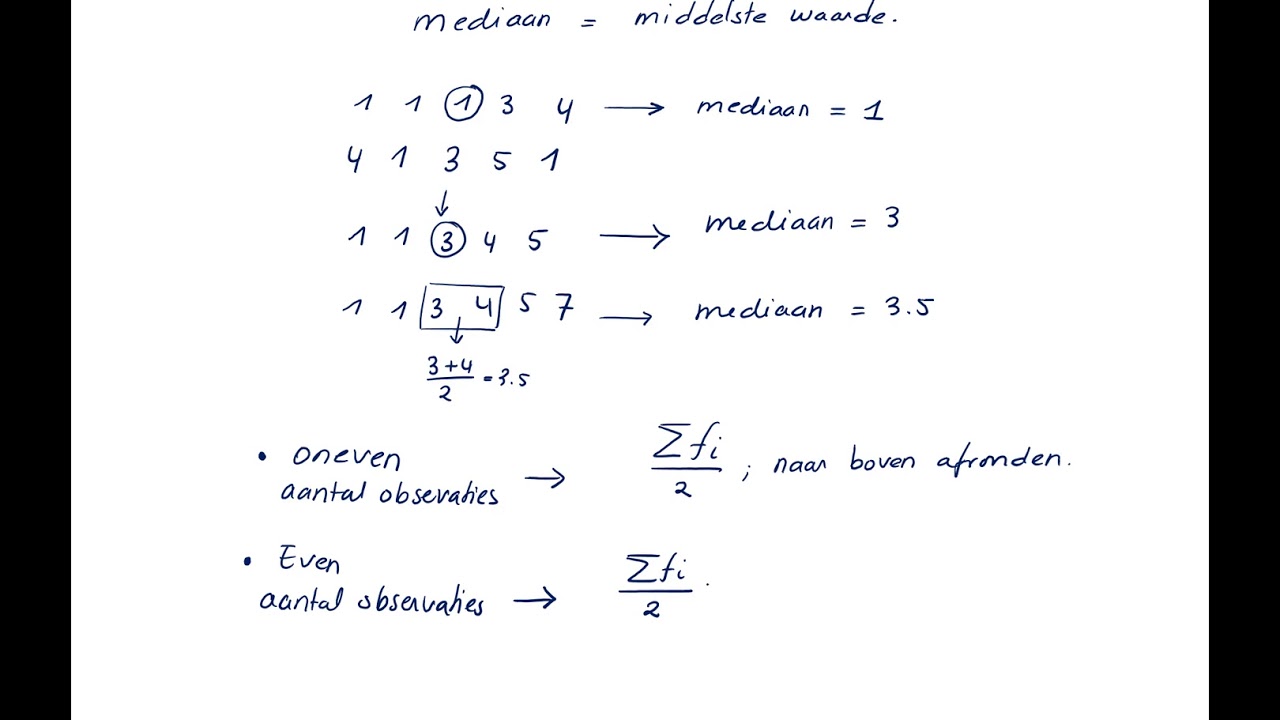 mediaan = middelste waarde.
1 1 1 3 4 → mediaan = 1
4 1 3 5 1
↓
1 1 3 4 5 → mediaan = 3
1 1 3 4 5 7 → mediaan = 3.5
↓
3+4
2
= 3.5
• oneven
aantal observaties → Σfi
2
; naar boven afronden.
• Even
aantal observaties → Σfi
2
.